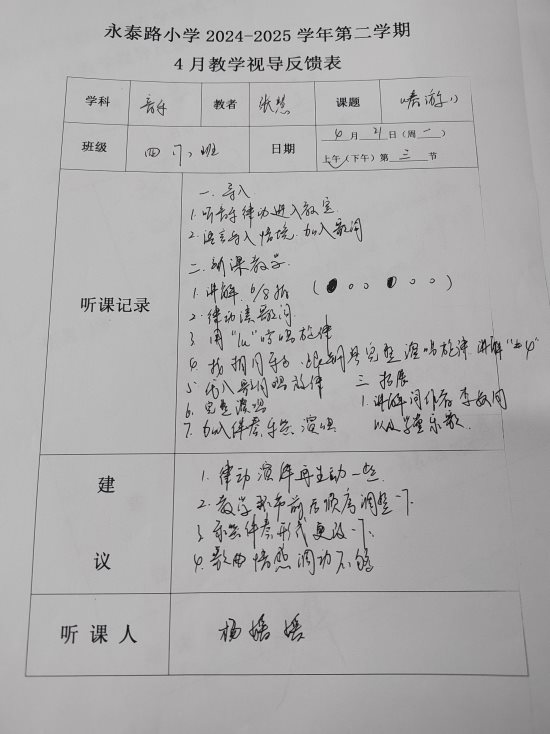 永泰路小学2024-2025学年第二学期
4月教学视导反馈表
学科 音乐 教者 张慧 课题 《春游》
班级 四(7)班 日期 4月21日(周一)
上午(下午)第三节
听课记录
一. 导入
1. 听音乐律动进入教室
2. 语言导入情境, 加入歌词
二. 新课教学.
1. 讲解 6/8拍 (●○○●○○)
2. 律动读歌词
3. 用“lu”哼唱旋律
4. 找相同乐句, 跟钢琴完整演唱旋律, 讲解“#4”
5. 代入歌词唱旋律
6. 完整演唱
7. 加入伴奏乐器, 演唱
三. 拓展
1. 讲解词作者李叔同
以及学堂乐歌.
建议
1. 律动演件再生动一些
2. 教学环节前后顺序调整一下
3. 乐器伴奏形式更改一下
4. 歌曲情感调动不够
听课人 杨